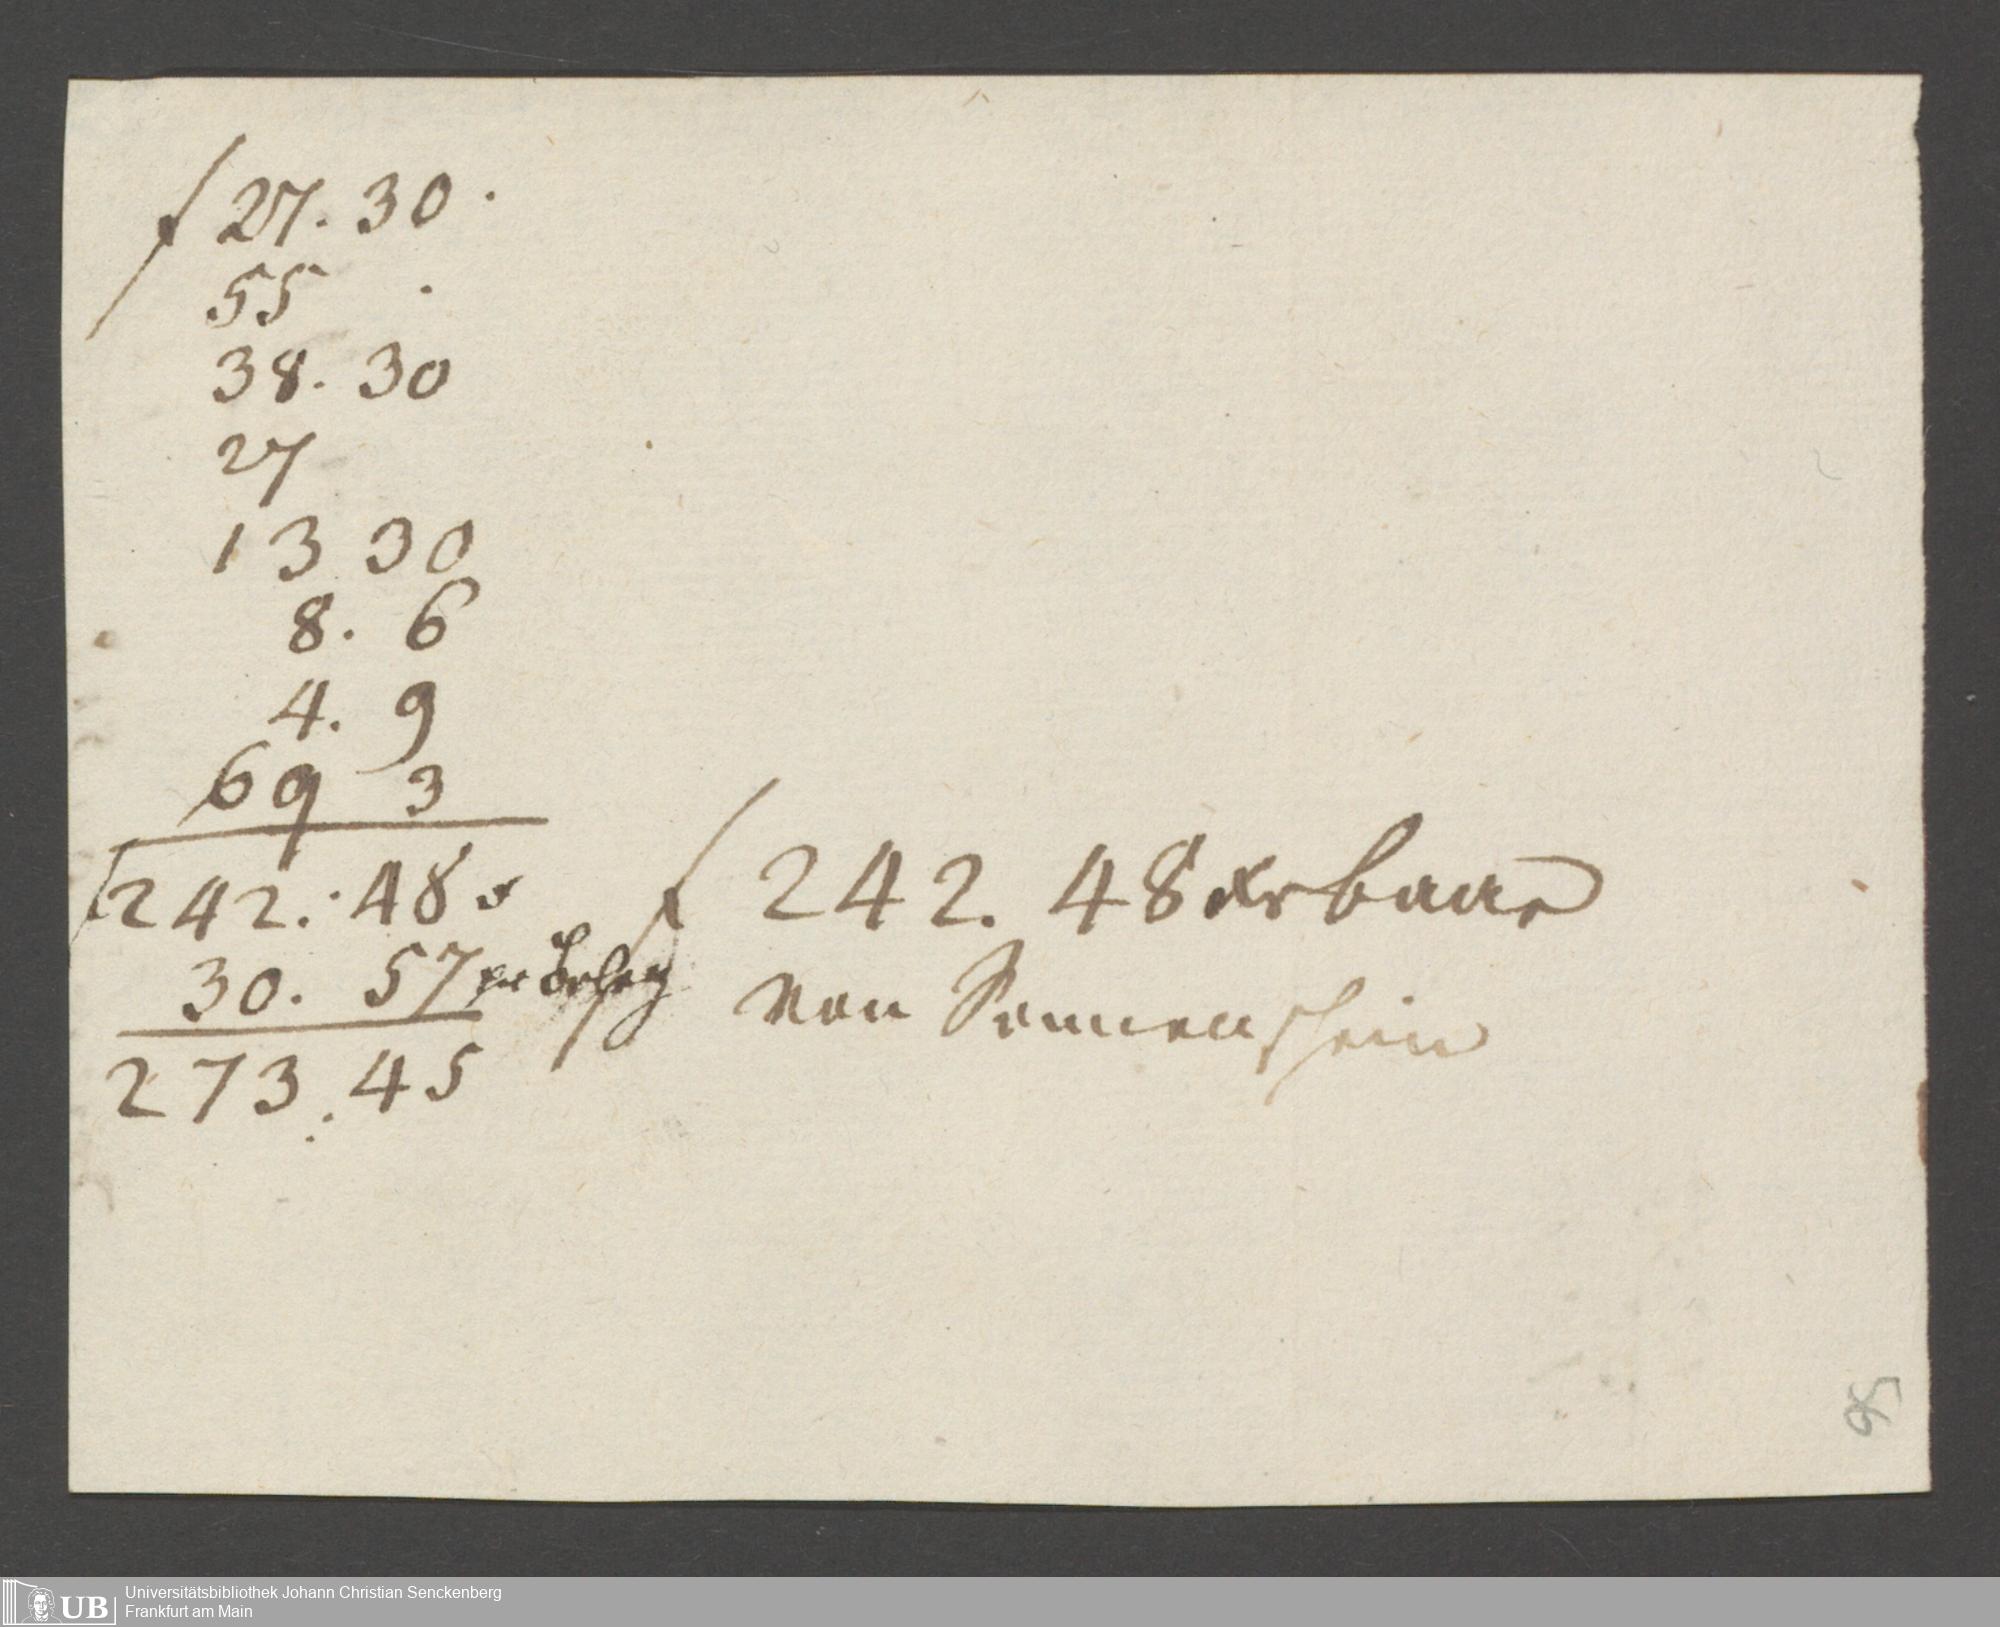 f 27. 30.
55 .
38. 30
27
13 30
8. 6
4. 9
69 3
242. 48 x
30. 57 pr Beleg
273. 45
f 242. 48 xr baar
von Sonnenschein
85
UB
Universitätsbibliothek Johann Christian Senckenberg
Frankfurt am Main